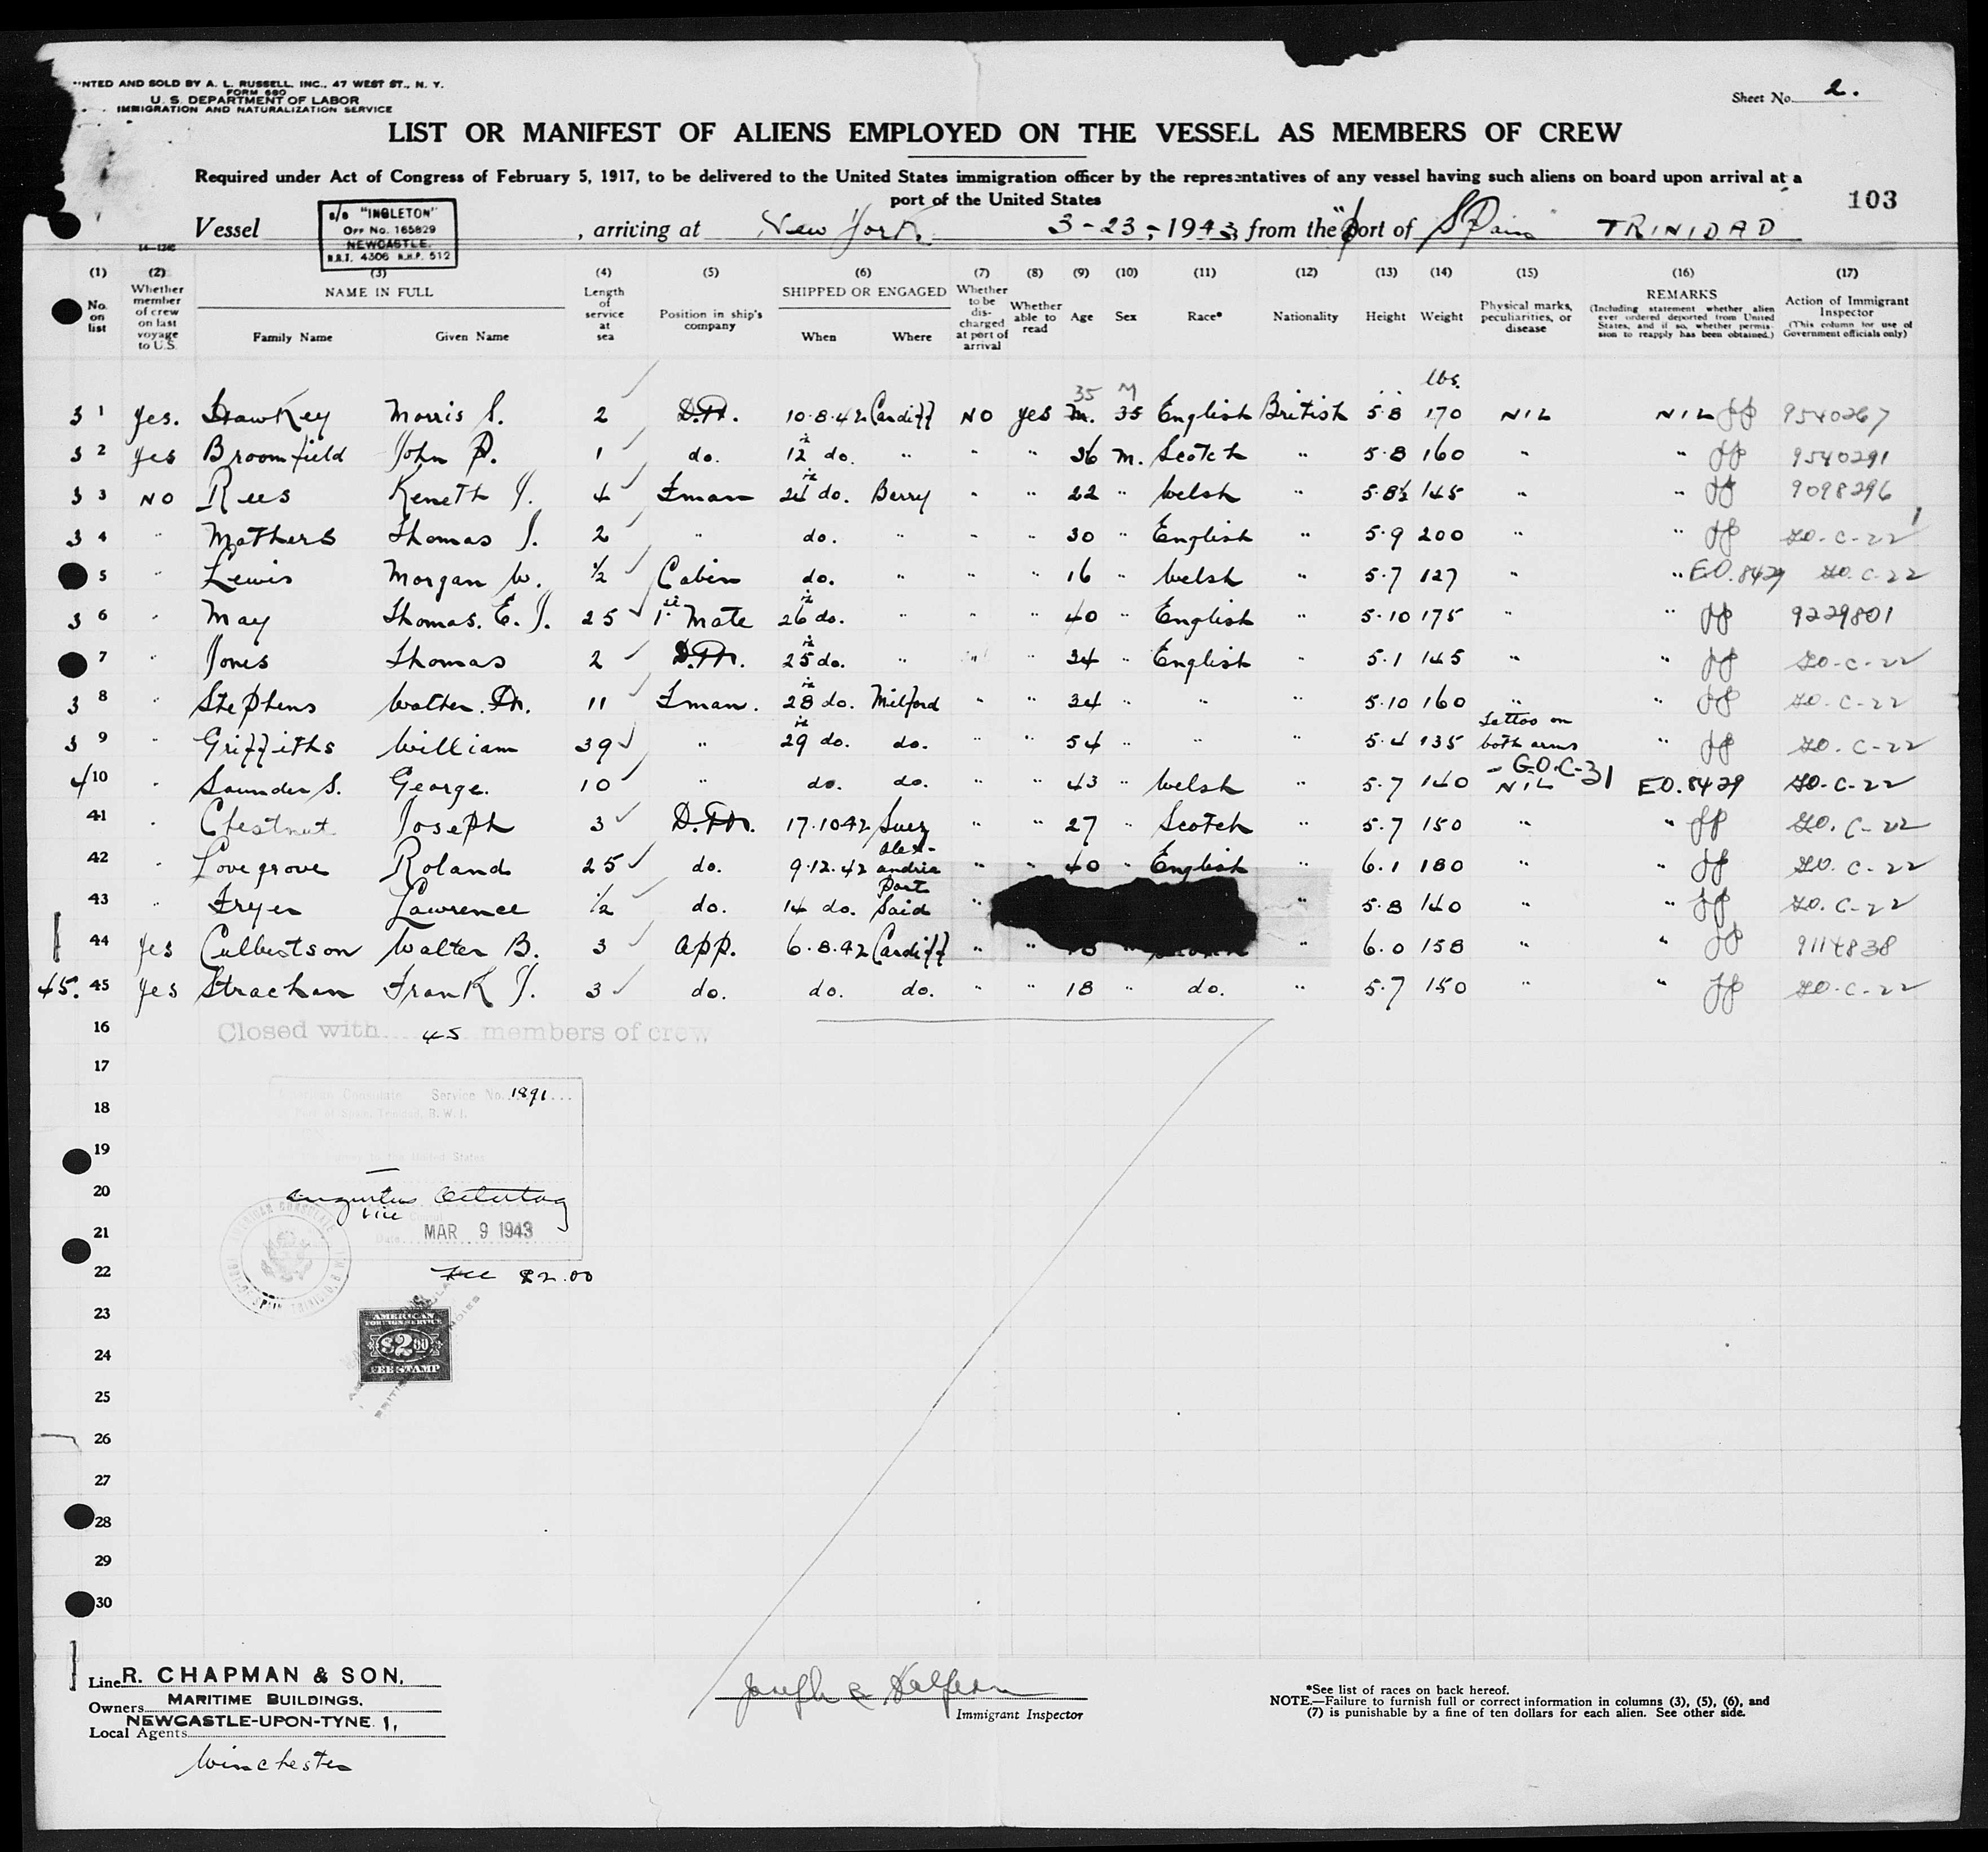 NTED AND SOLD BY A. L. RUSSELL, INC., 47 WEST ST., N. Y.
FORM 680
U. S. DEPARTMENT OF LABOR
IMMIGRATION AND NATURALIZATION SERVICE
Sheet No. 2.
LIST OR MANIFEST OF ALIENS EMPLOYED ON THE VESSEL AS MEMBERS OF CREW
Required under Act of Congress of February 5, 1917, to be delivered to the United States immigration officer by the representatives of any vessel having such aliens on board upon arrival at a
port of the United States
103
s/s "INGLETON"
OFF NO. 165829
NEWCASTLE.
N.R.T. 4306 N.H.P. 512
Vessel , arriving at New York 3-23-1943, from the port of SPain TRINIDAD
14-1240
(1) (2) (3) (4) (5) (6) (7) (8) (9) (10) (11) (12) (13) (14) (15) (16) (17)
No. on list
Whether member of crew on last voyage to U.S.
NAME IN FULL
Family Name Given Name
Length of service at sea
Position in ship's company
SHIPPED OR ENGAGED
When Where
Whether to be discharged at port of arrival
Whether able to read
Age Sex Race* Nationality Height Weight
Physical marks, peculiarities, or disease
REMARKS
(Including statement whether alien ever ordered deported from United States, and if so, whether permission to reapply has been obtained.)
Action of Immigrant Inspector
(This column for use of Government officials only)
lbs.
35 M
3 1 Yes. Morris S. 2 10.8.42 Cardiff NO yes M. 35 English British 5.8 170 NIL NIL 9540267
3 2 yes Broomfield John P. 1 do. 12 do. " " " 36 M. Scotch " 5.8 160 " 9540291
3 3 NO Rees Keneth J. 4 Fman 24 do. Barry " " 22 " Welsh " 5.8½ 145 " " 9098296
3 4 " Mathers Thomas J. 2 " do. " " " 30 " English " 5.9 200 " " 70-C-22
5 " Lewis Morgan W. ½ Cabin do. " " " 16 " Welsh " 5.7 127 " " E.O. 8429 70. C-22
3 6 " May Thomas. E. J. 25 1st Mate 26 do. " " " 40 " English " 5.10 175 " " 9229801
7 " Jones Thomas 2 25 do. " " 34 " English " 5.1 145 " " 70-C-22
3 8 " Stephens Walter. 11 Fman. 28 do. Milford " " 34 " " " 5.10 160 " " 70-C-22
3 9 " Griffiths William 39 " 29 do. do. " " 54 " " " 5.4 135 Tattoo on both arms " 70. C-22
- G.O.C-31
4 10 " Saunders. George. 10 " do. do. " " 43 " Welsh " 5.7 140 NIL EO. 8429 70-C-22
41 " Chestnut Joseph 3 17.10 42 Suez " " 27 " Scotch " 5.7 150 " " 70. C-22
42 " Lovegrove Roland 25 do. 9.12.42 Alexandria " " 40 " English " 6.1 180 " " 70. C-22
43 " Fryer Lawrence ½ do. 14 do. Port Said " " 5.8 140 " " 70. C-22
44 yes Culbertson Walter B. 3 App. 6.8.42 Cardiff " " " 6.0 158 " " 9114838
45. 45 yes Strachan Frank J. 3 do. do. do. " " 18 " do. " 5.7 150 " " 70-C-22
16 Closed with 45 members of crew
17
18
American Consulate Service No. 1891
Port of Spain, Trinidad, B. W. I.
19
to the United States
20
21
Vice
Date MAR 9 1943
AMERICAN CONSULATE
22
Fee $2.00
23
AMERICAN
FOREIGN SERVICE
$2.00
FEE STAMP
24
25
26
27
28
29
30
Line R. CHAPMAN & SON,
Owners MARITIME BUILDINGS,
NEWCASTLE-UPON-TYNE 1,
Local Agents
Winchester
Immigrant Inspector
*See list of races on back hereof.
NOTE.—Failure to furnish full or correct information in columns (3), (5), (6), and
(7) is punishable by a fine of ten dollars for each alien. See other side.